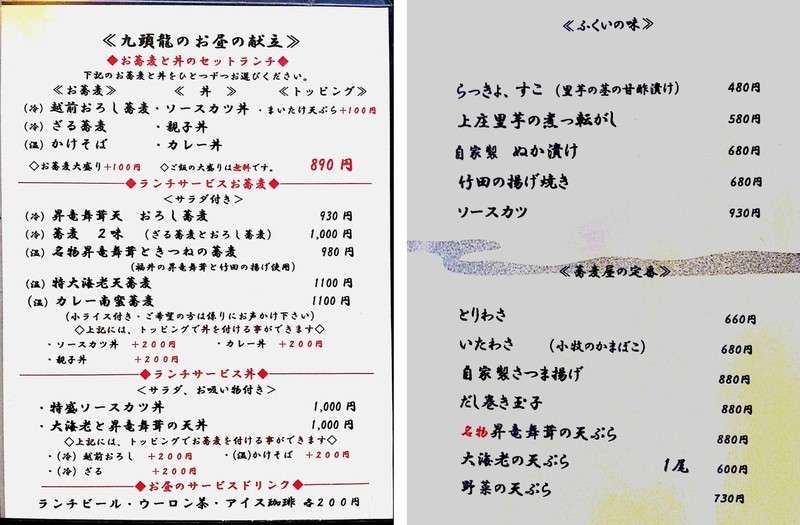 ≪九頭龍のお昼の献立≫
◆お蕎麦と丼のセットランチ◆
下記のお蕎麦と丼をひとつずつお選びください。
≪お蕎麦≫ ≪ 丼 ≫ ≪トッピング≫
(冷) 越前おろし蕎麦・ソースカツ丼 ・まいたけ天ぷら+100円
(冷) ざる蕎麦 ・親子丼
(温) かけそば ・カレー丼
◇お蕎麦大盛り+100円 ◇ご飯の大盛りは無料です。 890円
◆ランチサービスお蕎麦◆
＜サラダ付き＞
(冷) 昇竜舞茸天 おろし蕎麦 930円
(冷) 蕎麦 2味 (ざる蕎麦とおろし蕎麦) 1,000円
(温) 名物昇竜舞茸ときつねの蕎麦 980円
(福井の昇竜舞茸と竹田の揚げ使用)
(温) 特大海老天蕎麦 1100円
(温) カレー南蛮蕎麦 1100円
(小ライス付き・ご希望の方は係りにお声かけ下さい)
◇上記には、トッピングで丼を付ける事ができます◇
・ソースカツ丼 +200円 ・カレー丼 +200円
・親子丼 +200円
◆ランチサービス丼◆
＜サラダ、お吸い物付き＞
・特盛ソースカツ丼 1,000円
・大海老と昇竜舞茸の天丼 1,000円
◇上記には、トッピングでお蕎麦を付ける事ができます◇
・(冷) 越前おろし +200円 ・(温)かけそば +200円
・(冷) ざる +200円
◆お昼のサービスドリンク◆
ランチビール・ウーロン茶・アイス珈琲 各200円
≪ふくいの味≫
らっきょ、すこ (里芋の茎の甘酢漬け) 480円
上庄里芋の煮っ転がし 580円
自家製 ぬか漬け 680円
竹田の揚げ焼き 680円
ソースカツ 930円
≪蕎麦屋の定番≫
とりわさ 660円
いたわさ (小牧のかまぼこ) 680円
自家製さつま揚げ 880円
だし巻き玉子 880円
名物昇竜舞茸の天ぷら 880円
大海老の天ぷら 1尾 600円
野菜の天ぷら 730円